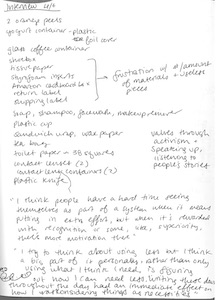 Interview #6
2 orange peels
yogurt container - plastic
foil cover
glass coffee container
shoebox
tissue paper
styrofoam inserts
Amazon cardboard box +
return label
shipping label
frustration w/ amount
of materials + useless
pieces
soap, shampoo, facewash, makeup remover
plastic cup
sandwich wrap, wax paper
tea bag
toilet paper - 8 squares
contact lenses (2)
contact lens containers (2)
plastic knife
values through
activism +
speaking up,
listening to
people's stories
"I think people have a hard time seeing
themselves as part of a system when it means
putting in extra effort, but when it's rewarded
with recognition in some, way, superiority,
there's more motivation there"
"I try to think about using less but I think
a big part is personally, rather than only
using what I think I need, is figuring
out how I can need less. Writing these down
throughout the day had an immediate effect on
how I was considering things as necessities"